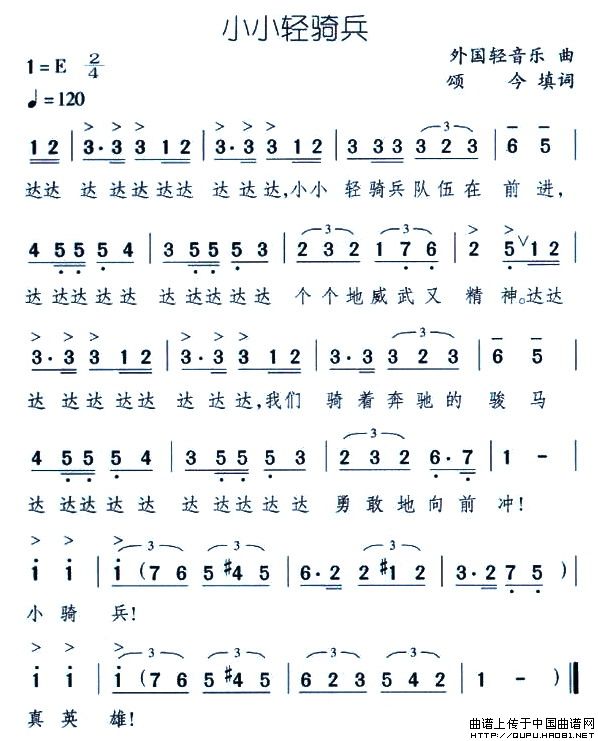 小小轻骑兵
1=E 2/4
外国轻音乐 曲
颂 今 填词
♩=120
1 2 | 3·3 3 1 2 | 3·3 3 1 2 | 3 3 3 3 2 3 | 6 5 |
达达 达 达达达达 达 达达,小小 轻骑兵队伍在 前 进,
4 5 5 5 4 | 3 5 5 5 3 | 2 3 2 1 7 6 | 2 5 ∨ 1 2 |
达 达达达达 达达达达达 个个地威武又 精 神。达达
3·3 3 1 2 | 3·3 3 1 2 | 3 3 3 3 2 3 | 6 5 |
达 达达达达 达 达达,我们 骑着奔驰的 骏 马
4 5 5 5 4 | 3 5 5 5 3 | 2 3 2 6·7 | 1 - |
达 达达达 达 达达达达达 勇敢地向前 冲!
i i | i (7 6 5 #4 5 | 6·2 2 #1 2 | 3·2 7 5 ) |
小 骑 兵!
i i | i (7 6 5 #4 5 | 6 5 3 5 4 2 | 1 - ) ‖
真 英 雄!
曲谱上传于中国曲谱网
HTTP://QUPU.HAO81.NET